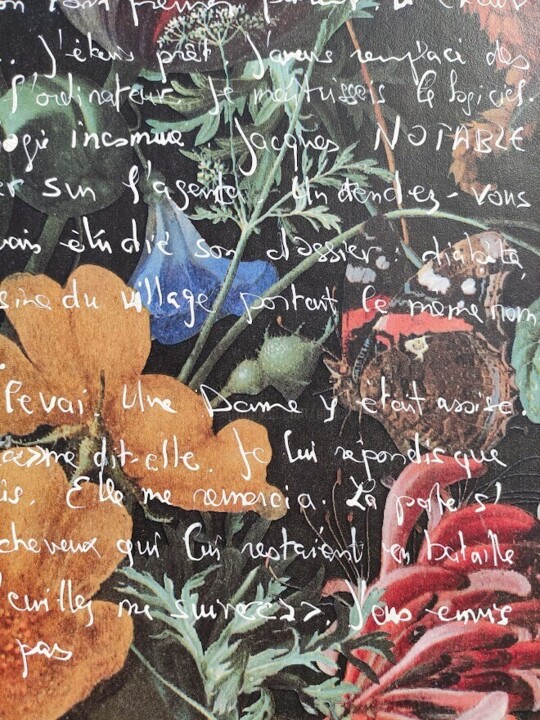 . J'étais prêt. J'avais remplacé des
l'ordinateur. Je maîtrisais le logiciel.
ogie inconnue Jacques NOTABLE
er sur l'agenda. Un rendez-vous
vais étudié son dossier : diabète,
sine du village portait le même nom
levai. Une Dame y était assise.
>> me dit-elle. Je lui répondis que
is. Elle me remercia. La porte s'
cheveux qui lui restaient en bataille
euillez me suivre >>. J'eus envie
pas